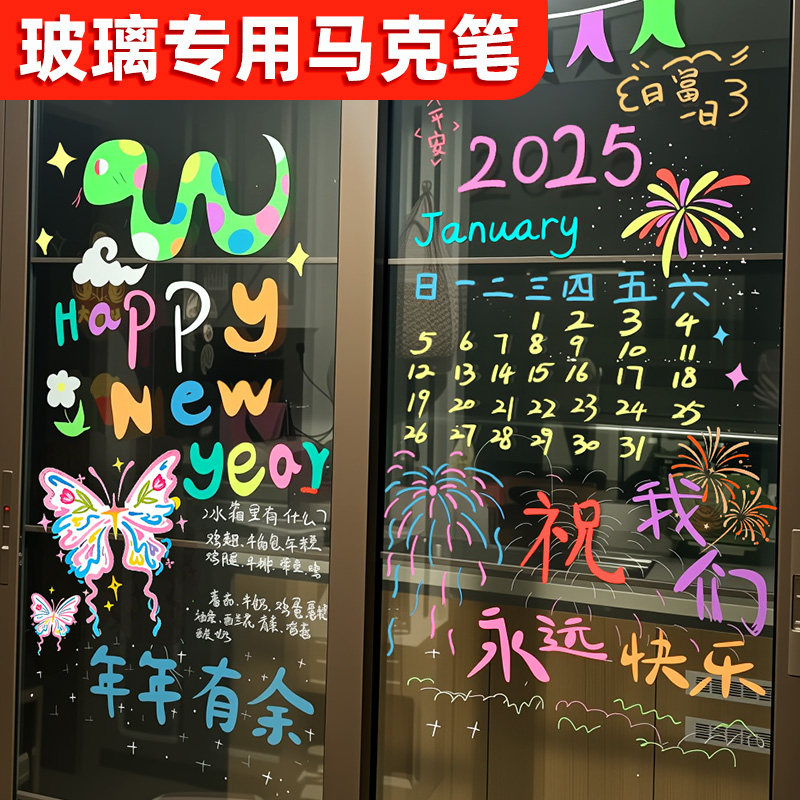 玻璃专用马克笔
Happy
New
year
冰箱里有什么
年年有余
平安
日富一日
2025
January
日 一 二 三 四 五 六
1 2 3 4
5 6 7 8 9 10 11
12 13 14 15 16 17 18
19 20 21 22 23 24 25
26 27 28 29 30 31
祝我们
永远快乐